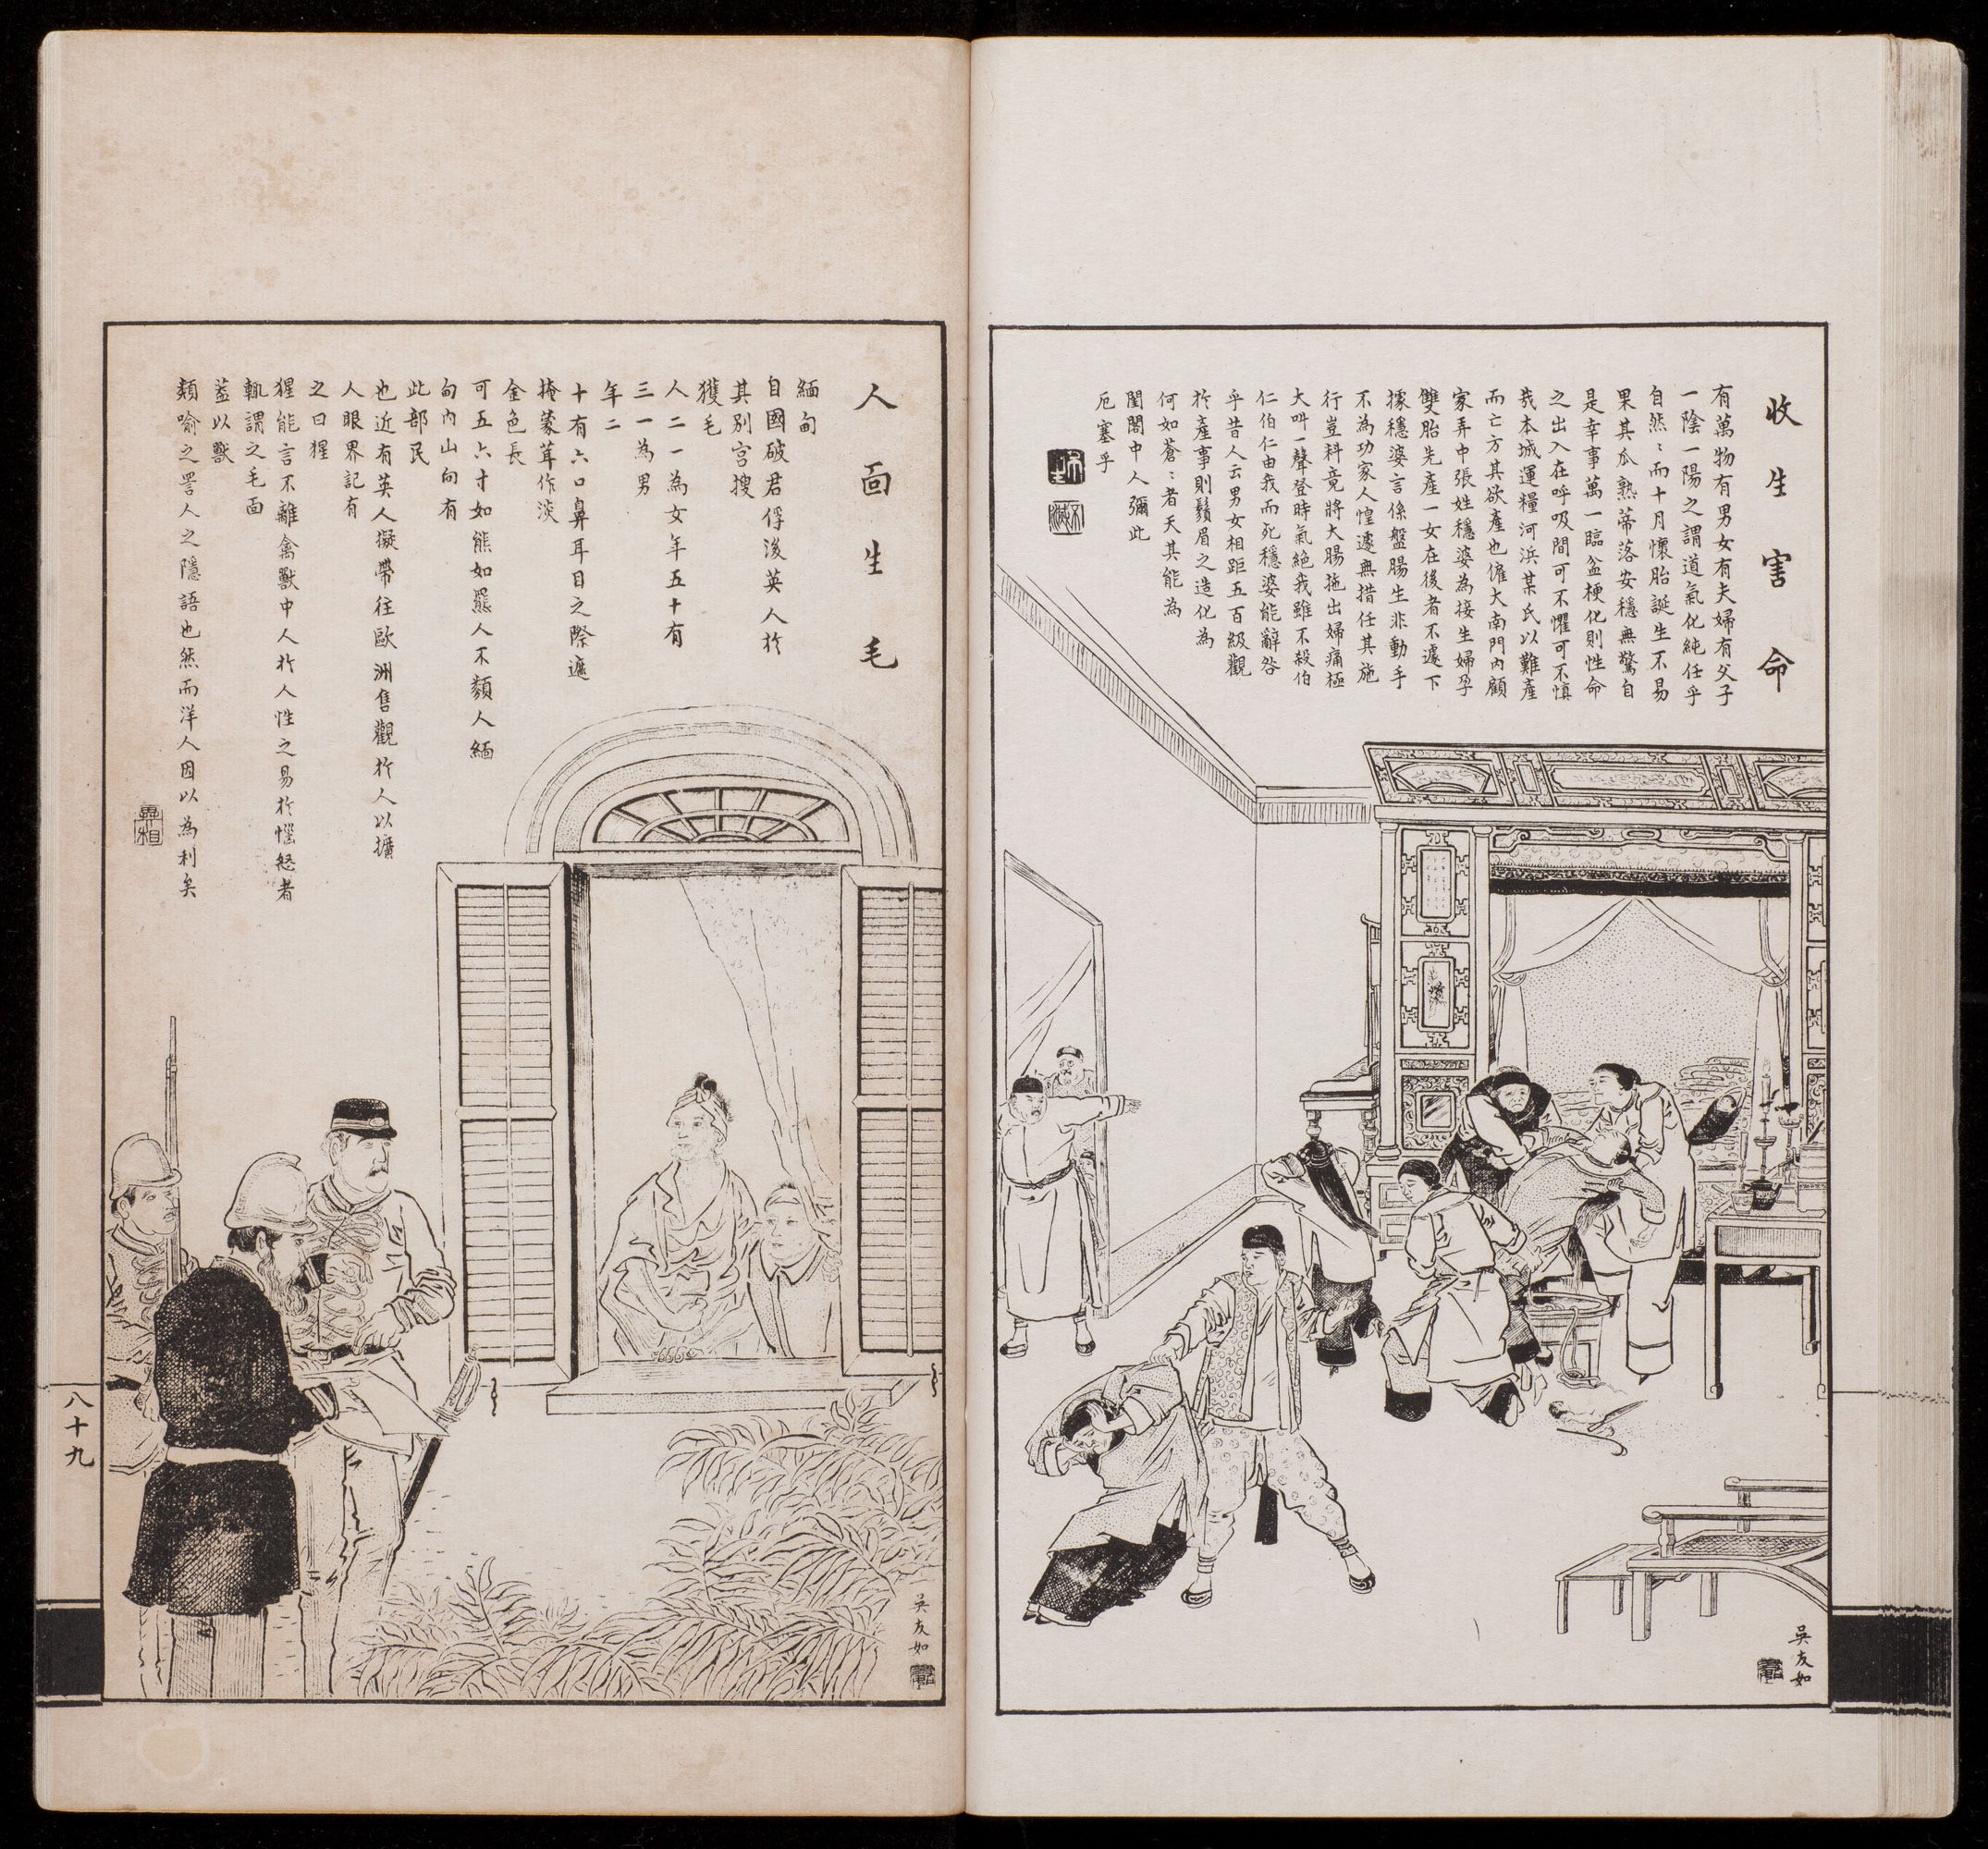 收生害命
有萬物有男女有夫婦有父子
一陰一陽之謂道氣化純任乎
自然〻而十月懷胎誕生不易
果其瓜熟蒂落安穩無驚自
是幸事萬一臨盆梗化則性命
之出入在呼吸間可不懼可不慎
哉本城運糧河浜某氏以難產
而亡方其欲產也僱大南門內顧
家弄中張姓穩婆為接生婦孕
雙胎先產一女在後者不遽下
據穩婆言係盤腸生非動手
不為功家人惶遽無措任其施
行豈料竟將大腸拖出婦痛極
大呌一聲登時氣絕我雖不殺伯
仁伯仁由我而死穩婆能辭咎
乎昔人云男女相距五百級觀
於產事則鬚眉之造化為
何如蒼〻者天其能為
閨閣中人彌此
厄塞乎
吳友如
人面生毛
緬甸
自國破君俘後英人於
其別宮搜
獲毛
人二一為女年五十有
三一為男
年二
十有六口鼻耳目之際遮
掩蒙茸作淡
金色長
可五六寸如熊如羆人不類人緬
甸內山向有
此部民
也近有英人擬帶往歐洲售觀於人以擴
人眼界記有
之曰猩
猩能言不離禽獸中人於人性之易於惱怒者
輒謂之毛面
蓋以獸
類喻之詈人之隱語也然而洋人因以為利矣
異相
吳友如
八十九